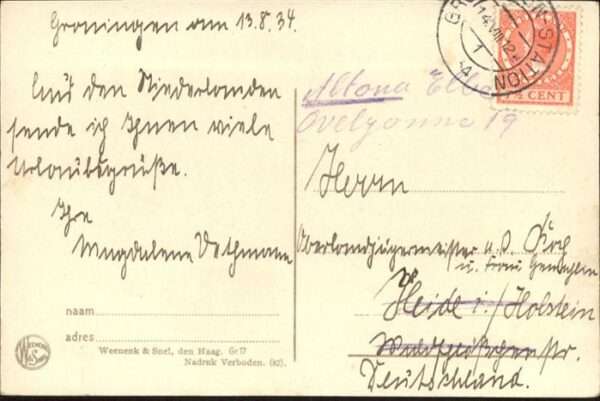 Groningen am 13.8.34.
Aus den Niederlanden
sende ich Ihnen viele
Urlaubsgrüße.
Ihre
Magdalene Dethmann
naam
adres
Wernenk & Snel, den Haag. Gr17
Nadruk Verboden.
W&S
STATION
14 VIII
½ CENT
Altona Elbe
Övelgönne 19
Herrn
Oberlandjägermeister a.D. Koch
u. Frau Gemahlin
Heide i./Holstein
str.
Deutschland.